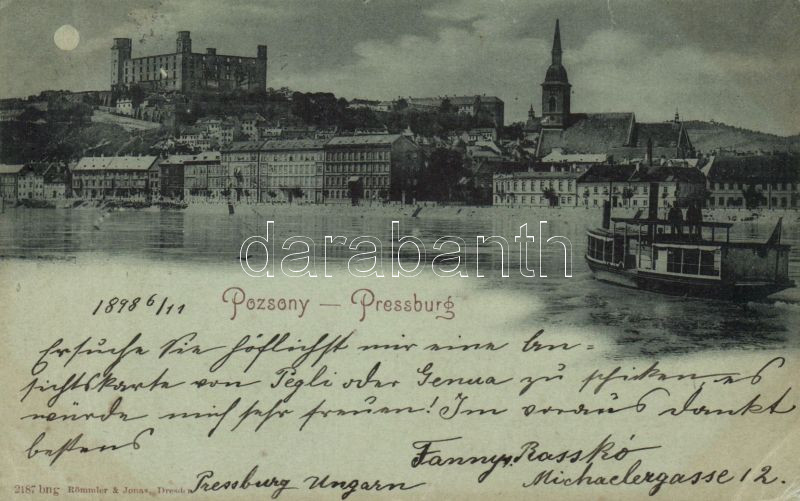 darabanth
Pozsony — Pressburg
1898 6/11
Ersuche Sie höflichst mir eine An=
sichtskarte von Pegli oder Genua zu schiken es
würde mich sehr freuen! Im voraus dankt
bestens
Fanny Rasskó
Pressburg Ungarn Michaelergasse 12.
2187 bng Römmler & Jonas, Dresden